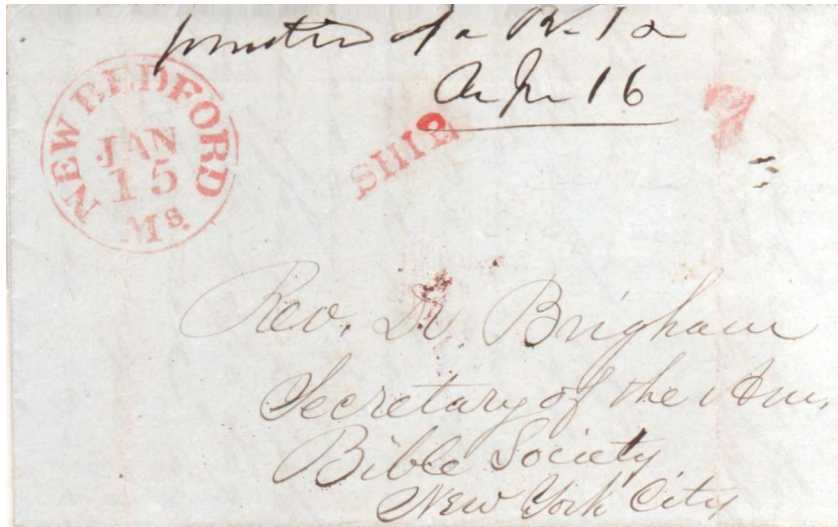 of a
16
NEW BEDFORD
JAN
15
Ms.
SHIP
7
Rev. Dr. Brigham
Secretary of the Am.
Bible Society
New York City